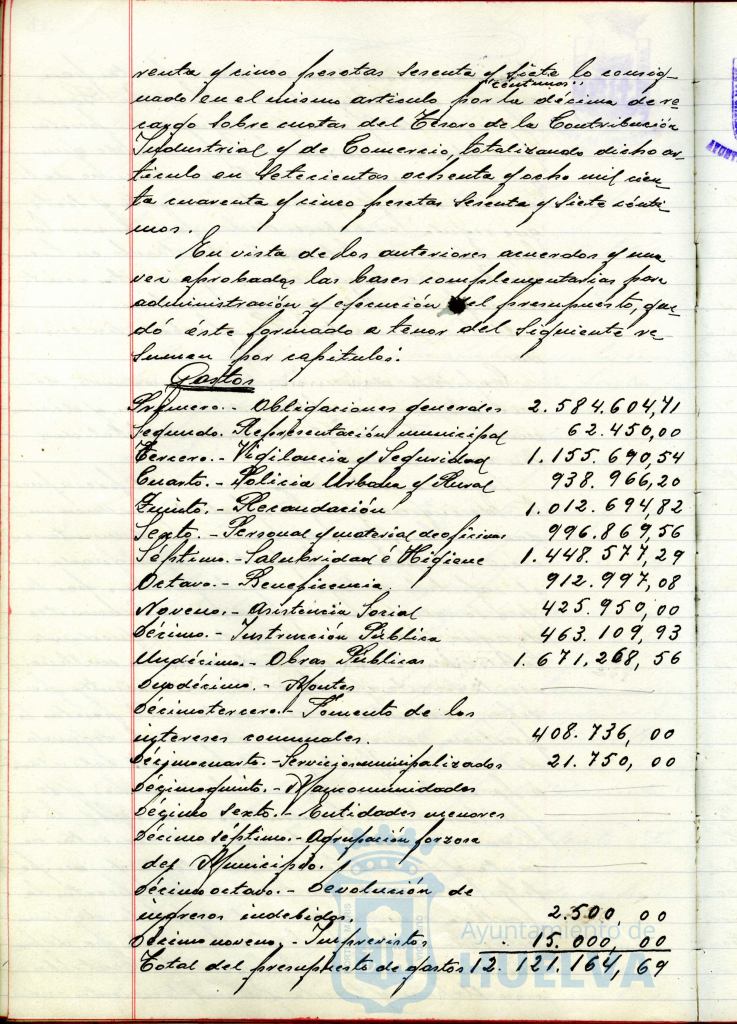 renta y cinco pesetas sesenta y siete lo consig-
céntimos
nado en el mismo articulo por la décima de re-
cargo sobre cuotas del Tesoro de la Contribución
Industrial y de Comercio, totalizando dicho ar-
tículo en setecientas ochenta y ocho mil cien-
ta cuarenta y cinco pesetas sesenta y siete cénti-
mos.
En vista de los anteriores acuerdos y una
vez aprobadas las bases complementarias para
administración y ejecución del presupuesto, que-
dó éste formado a tenor del siguiente re-
sumen por capitulos:
Gastos
Primero.- Obligaciones generales 2.584.604,71
Segundo. Representación municipal 62.450,00
Tercero.- Vigilancia y Seguridad 1.155.690,54
Cuarto.- Policia Urbana y Rural 938.966,20
Quinto.- Recaudación 1.012.694,82
Sexto.- Personal y material de oficinas 996.869,56
Séptimo.- Salubridad é Higiene 1.448.577,29
Octavo.- Beneficencia. 912.997,08
Noveno.- Asistencia Social 425.950,00
Décimo.- Instrucción Pública 463.109,93
Undécimo.- Obras Públicas 1.671.268,56
Duodécimo.- Montes
Décimotercero.- Fomento de los
intereses comunales. 408.736,00
Décimocuarto.- Servicios municipalizados 21.750,00
Décimoquinto.- Mancomunidades
Décimo sexto.- Entidades menores
Décimo séptimo.- Agrupación forzosa
del Municipio.
Décimo octavo.- Devolución de
ingresos indebidos. 2.500,00
Décimo noveno.- Imprevistos 15.000,00
Total del presupuesto de gastos 12.121.164,69
Ayuntamiento de
HUELVA